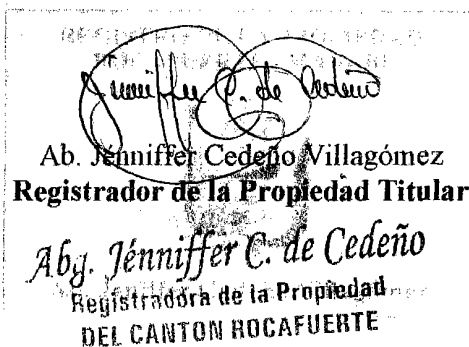 Jenniffer C. de Cedeño
Ab. Jénniffer Cedeño Villagómez
Registrador de la Propiedad Titular
Abg. Jénniffer C. de Cedeño
Registradora de la Propiedad
DEL CANTON ROCAFUERTE